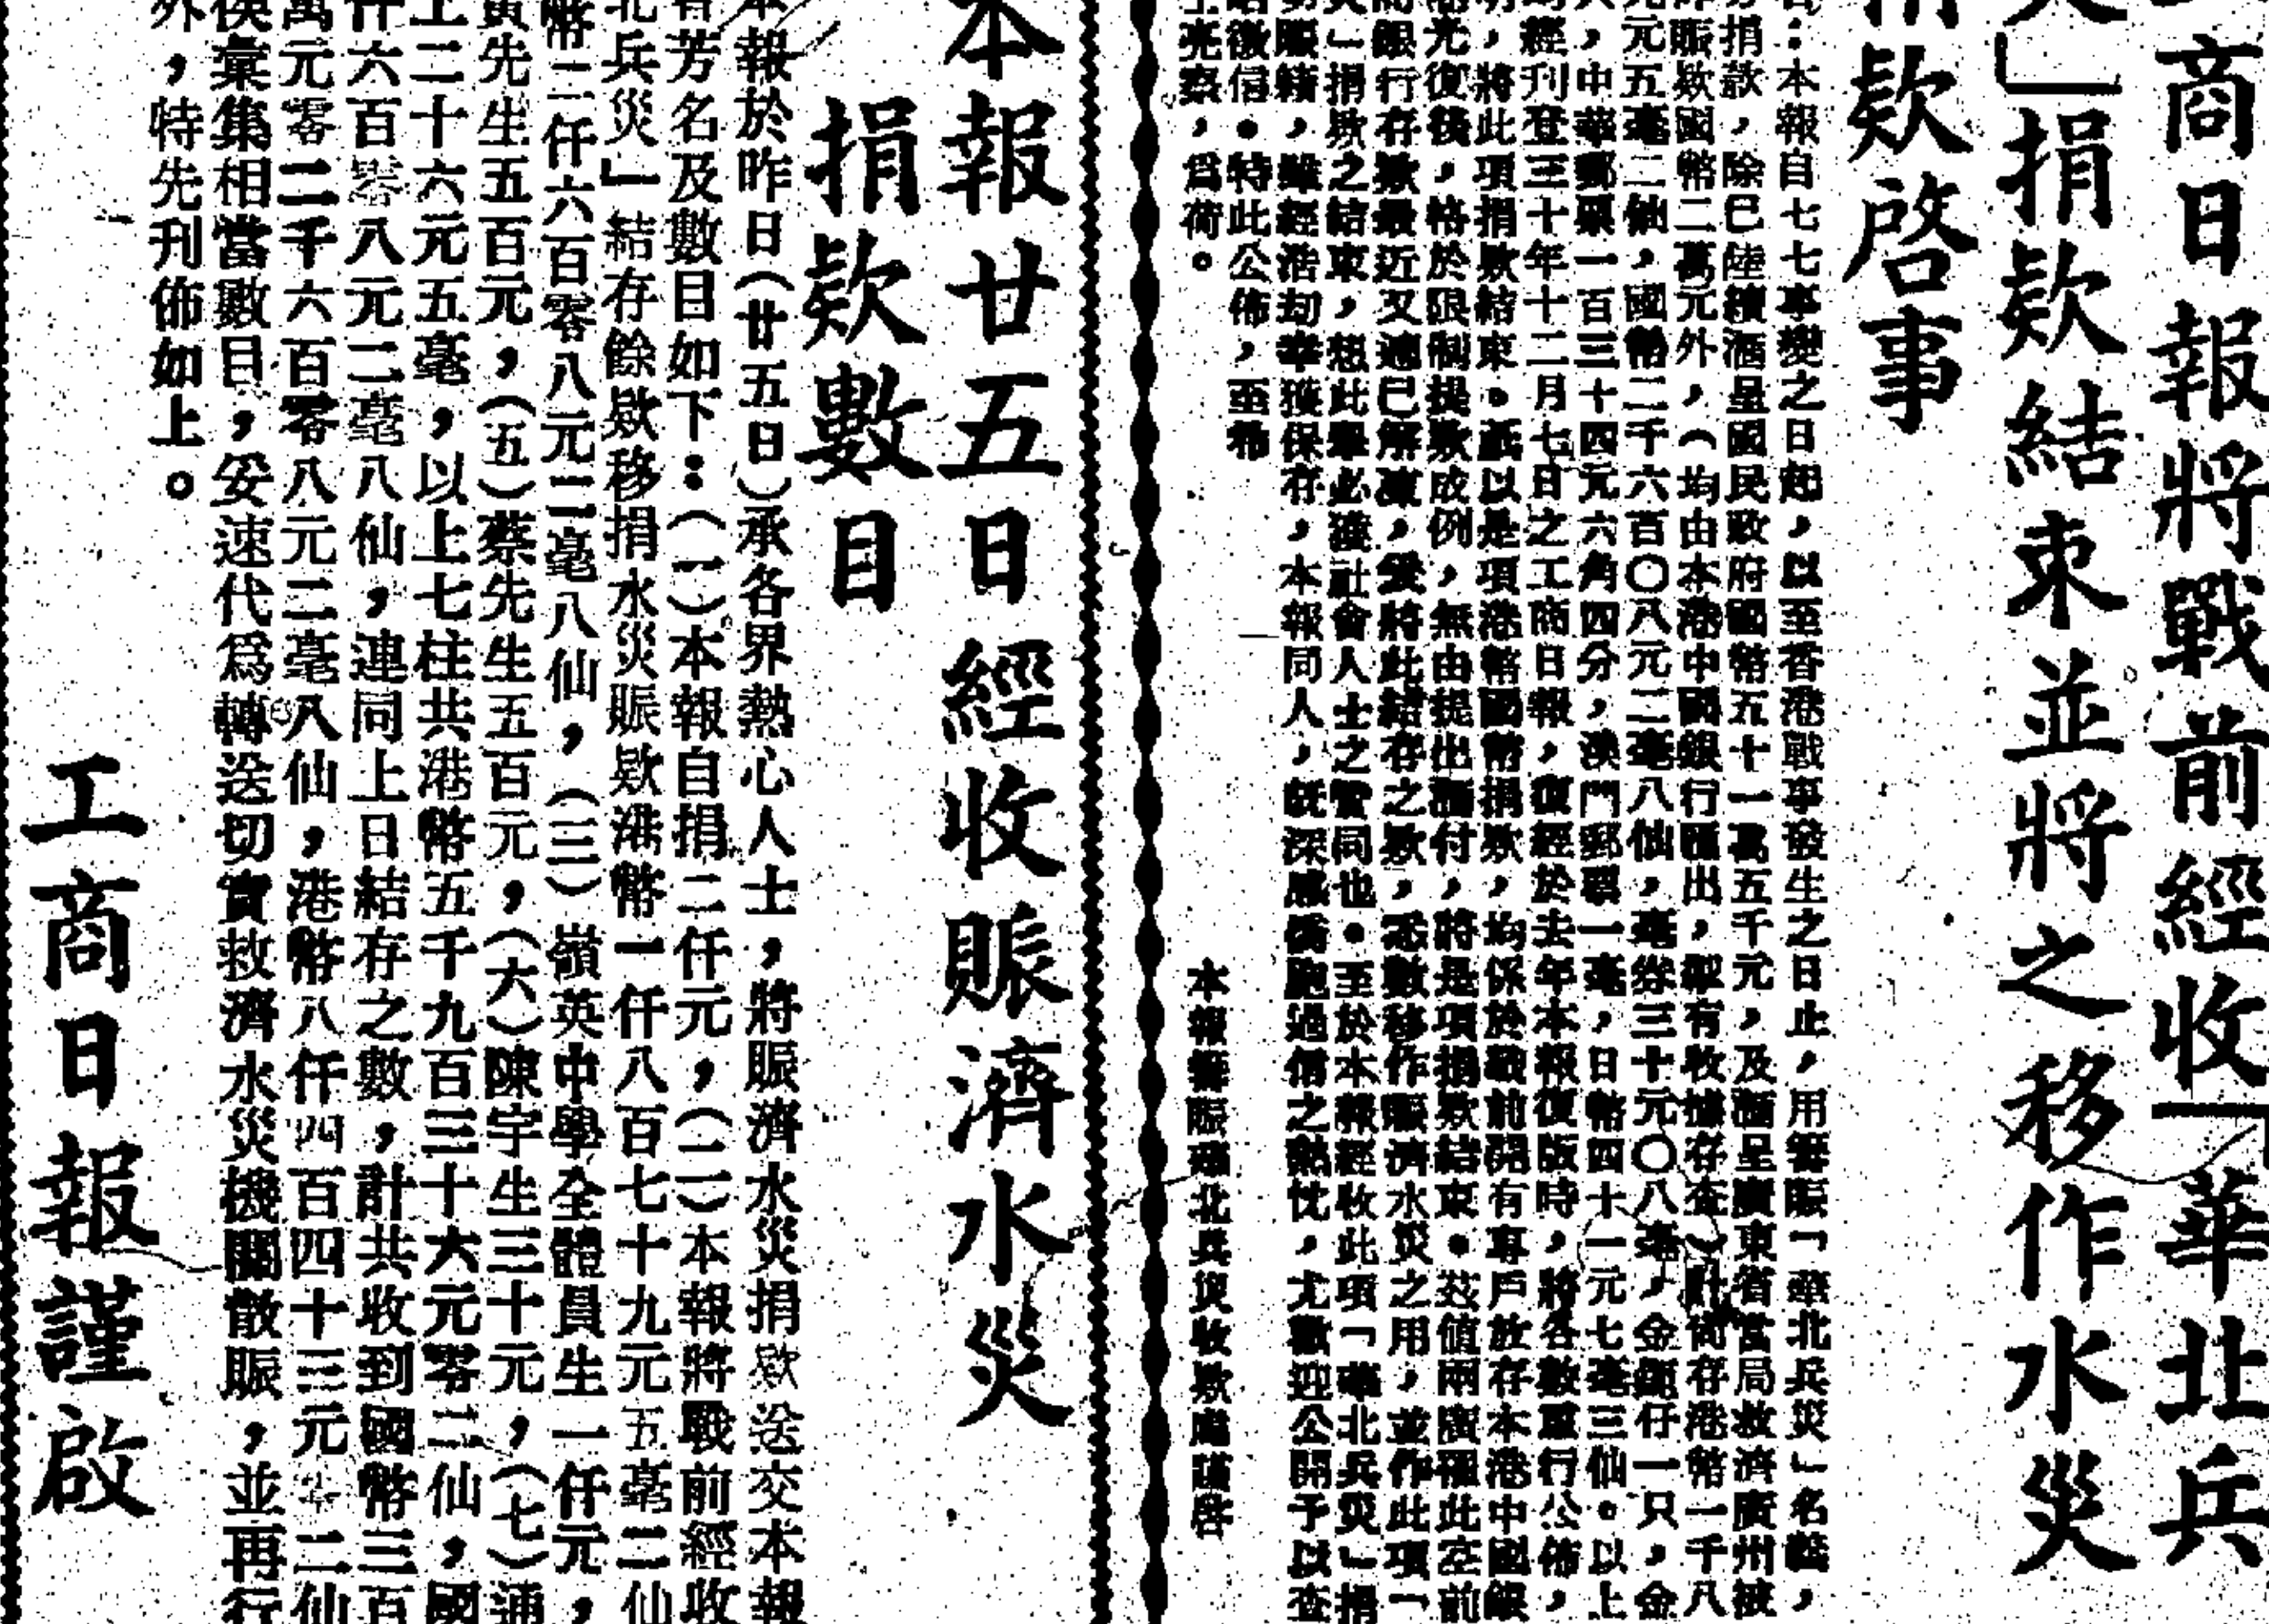 商日報將戰前經收「華北兵
災」捐欵結束並將之移作水災
捐欵啓事
:本報自七七事變之日起,以至香港戰事發生之日止,用籌賑「華北兵災」名義,
捐款,除已陸續滙呈國民政府國幣五十一萬五千元,及滙呈廣東省當局救濟廣州被
賑欵國幣二萬元外,(均由本港中國銀行匯出,製有收據存查)計尚存港幣一千八
元五毫二仙,國幣二千六百〇八元二毫八仙,毫券三十元〇八毫,金 仔一只,金
,中華郵票一百三十四元六角四分,澳門郵票一毫,日幣四十一元七毫三仙。以上
經刊登三十年十二月七日之工商日報,復經於去年本報復版時,將各數重行公佈,
,將此項捐欵結束。 以是項港幣國幣捐欵,均係於戰前開有專戶放存本港中國銀
光復後,格於限制提欵成例,無由提出滙付,將是項捐欵結束。茲值兩廣 此空前
銀行存欵最近又適已解凍,爰將此結存之欵,悉數移作賑濟水災之用,並作此項「
」捐欵之結束,想此舉必獲社會人士之贊同也。至於本報經收此項「華北兵災」捐
賬籍,雖經浩劫幸獲保存,本報同人,既深感僑胞過信之熱忱,尤歡迎公開予以查
徵信。特此公佈,至希
亮察,爲荷。
本報籌賑華北兵災收欵處謹啓
本報廿五日經收賑濟水災
捐欵數目
本報於昨日(廿五日)承各界熱心人士,將賑濟水災捐欵送交本報
芳名及數目如下:(一)本報自捐二仟元,(二)本報將戰前經收
北兵災」結存餘欵移捐水災賑欵港幣一仟八百七十九元五毫二仙
幣二仟六百零八元二毫八仙,(三)嶺英中學全體員生一仟元,
黃先生五百元,(五)蔡先生五百元,(六)陳宇生三十元,(七)通
上二十六元五毫,以上七柱共港幣五千九百三十六元零二仙,國
仟六百零八元二毫八仙,連同上日結存之數,計共收到國幣三百
萬元零二千六百零八元二毫八仙,港幣八仟四百四十三元零二仙
俟彙集相當數目,妥速代爲轉送切實救濟水災機關散賑,並再行
外,特先刊佈如上。
工商日報謹啟